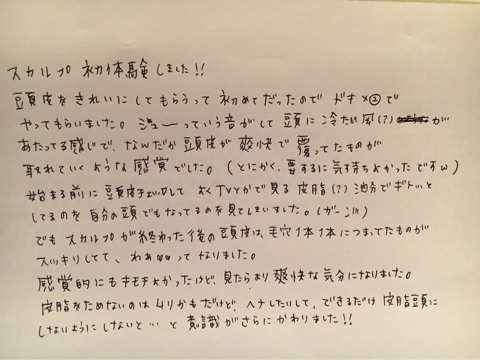 スカルプ 初体験しました!!
頭皮をきれいにしてもらうって初めてだったので ドキ×②で
やってもらいました。シューっていう音がして頭に冷たい風(?)が
あたってる感じで、なんだか頭皮が爽快で覆ってたものが
取れていくような感覚でした。(とにかく、要するに気持ちよかったですw)
始まる前に頭皮チェックして よくTVとかで見る皮脂(?)油分でギトッと
してるのを自分の頭でもなってるのを見てしまいました。(ガーン!!!)
でもスカルプが終わった後の頭皮は毛穴1本1本につまってたものが
スッキリしてて、わぁ って なりました。
感覚的にもキモチよかったけど、見たらより爽快な気分になりました。
皮脂をためないのは ムリかもだけど、ヘナしたりして、できるだけ 皮脂頭に
しないようにしないと… と 意識がさらにかわりました!!